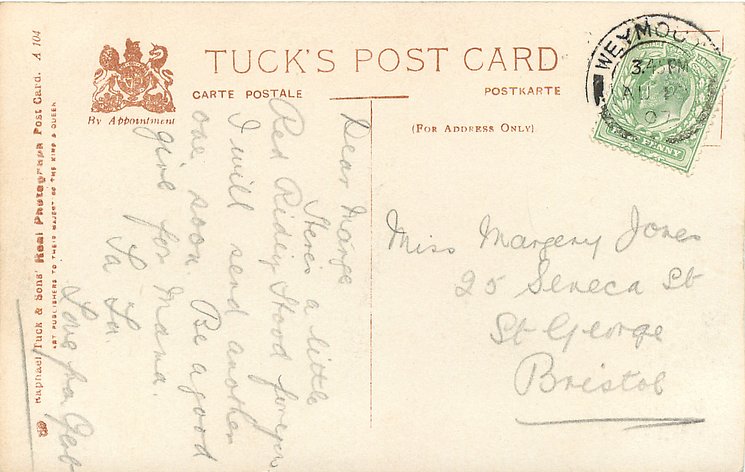 TUCK'S POST CARD
CARTE POSTALE
POSTKARTE
By Appointment
(FOR ADDRESS ONLY)
Raphael Tuck & Sons' Real Photograph Post Card. A 104
ART PUBLISHERS TO THEIR MAJESTIES THE KING & QUEEN
WEYMOU
3.45PM
AU
07
PENNY
Dear Marge
Heres a little
Red Ridey Hood for you
I will send another
one soon. Be a good
girl for Mama.
Ta Ta.
Love fra Gert
Miss Margery Jones
25 Seneca St
St George
Bristol